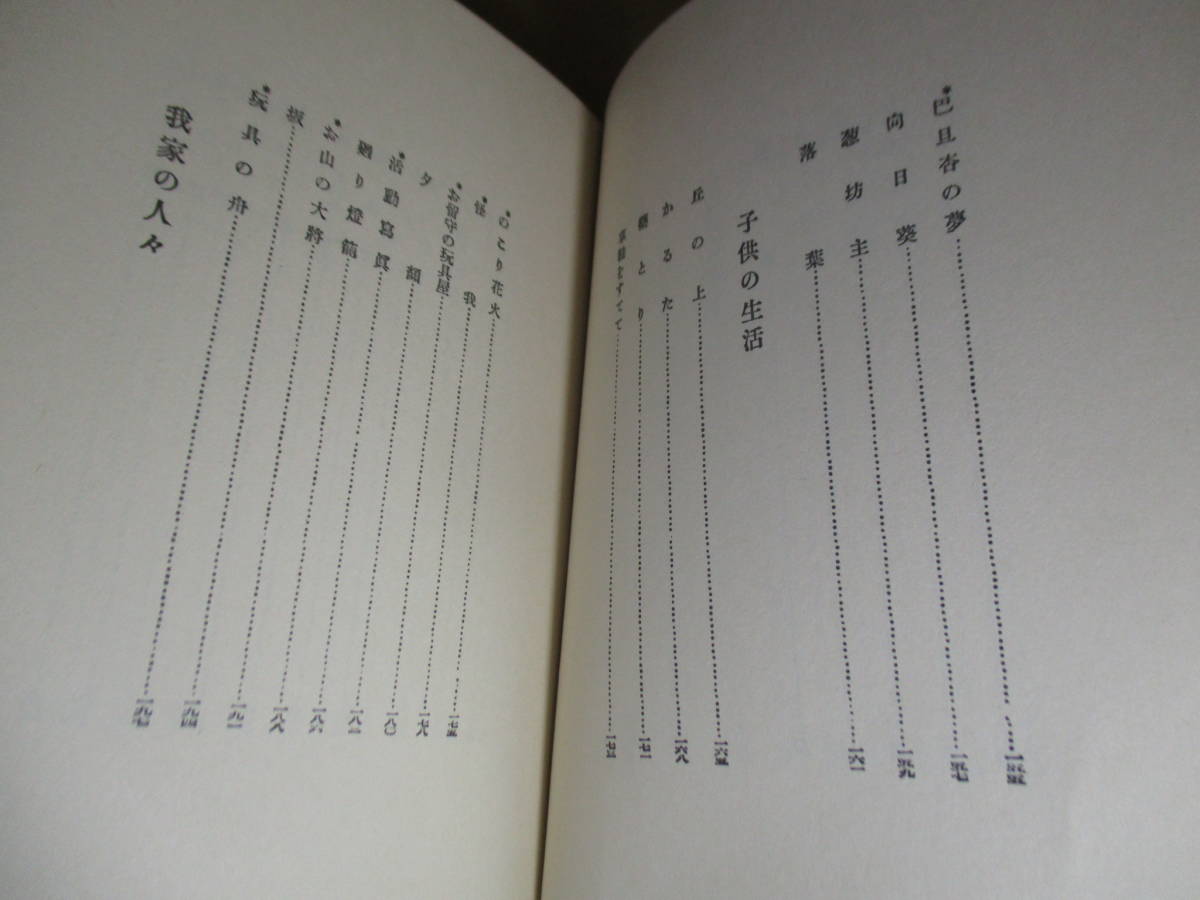 *巴旦杏の夢……一五五
向日葵……一五七
葱坊主……一五九
落葉……一六一
子供の生活
丘の上……一六五
かるた……一六八
とり……一七一
をすてて……一七三
*のこり花火……一七五
*怪我……一七八
*お留守の玩具屋……一八〇
夕顔……一八二
*活動寫眞……一八六
廻り燈籠……一八八
*お山の大將……一九一
坂……一九四
*玩具の舟……一九七
我家の人々